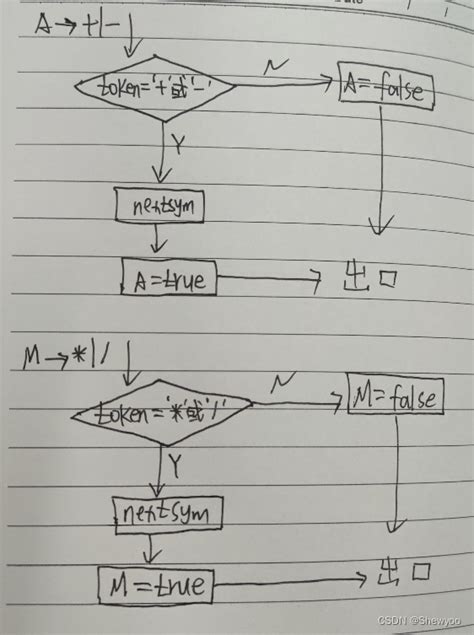 A→+|-
token='+'或'-'
N
A=false
Y
nextsym
A=true
出口
M→*|/
token='*'或'/'
N
M=false
Y
nextsym
M=true
出口
CSDN @Shewyoo